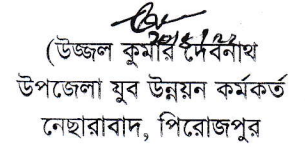 (উজ্জল কুমার দেবনাথ
উপজেলা যুব উন্নয়ন কর্মকর্ত
নেছারাবাদ, পিরোজপুর